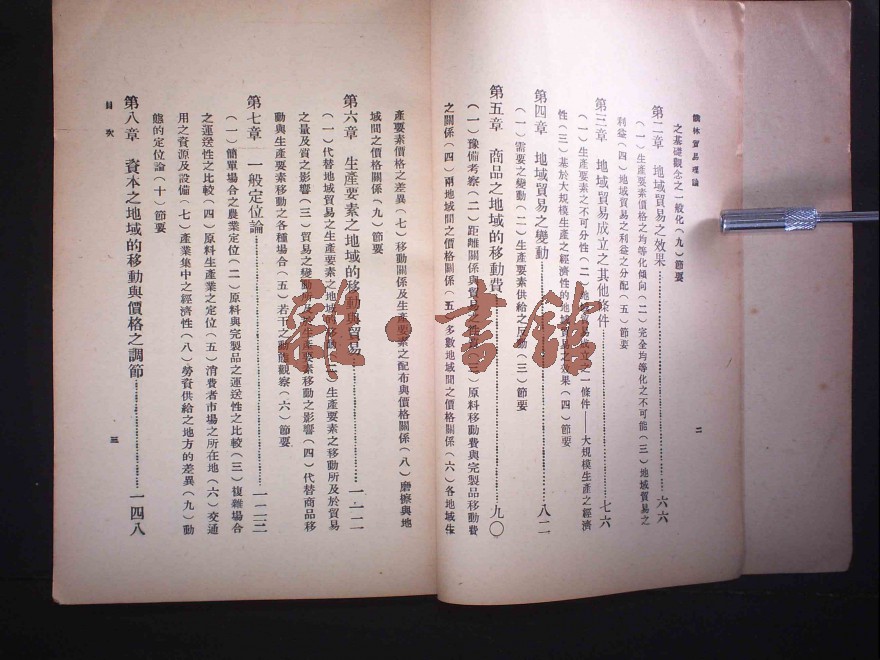 貿易理論
之基礎觀念之一般化（九）節要
第二章　地域貿易之效果…………六六
（一）生產要素價格之均等化傾向（二）完全均等化之不可能（三）地域貿易之
利益（四）地域貿易之利益之分配（五）節要
第三章　地域貿易成立之其他條件…………七六
（一）生產要素之不可分性（二）地域貿易成立之一條件——大規模生產之經濟
性（三）基於大規模生產之經濟性的地域貿易之效果（四）節要
第四章　地域貿易之變動…………八二
（一）需要之變動（二）生產要素供給之反動（三）節要
第五章　商品之地域的移動費…………九〇
（一）豫備考察（二）距離關係與貿易之性質（三）原料移動費與完製品移動費
之關係（四）兩地域間之價格關係（五）多數地域間之價格關係（六）各地域生
二
產要素價格之差異（七）移動關係及生產要素之配布與價格關係（八）磨擦與地
域間之價格關係（九）節要
第六章　生產要素之地域的移動與貿易…………一一二
（一）代替地域貿易之生產要素之地域的移動（二）生產要素之移動所及於貿易
之量及質之影響（三）貿易之變動所及於生產要素移動之影響（四）代替商品移
動與生產要素移動之各種場合（五）若干之動態觀察（六）節要
第七章　一般定位論…………一二三
（一）簡單場合之農業定位（二）原料與完製品之運送性之比較（三）複雜場合
之運送性之比較（四）原料生產業之定位（五）消費者市場之所在地（六）交通
用之資源及設備（七）產業集中之經濟性（八）勞資供給之地方的差異（九）動
態的定位論（十）節要
第八章　資本之地域的移動與價格之調節…………一四八
目次
三
雜·書館